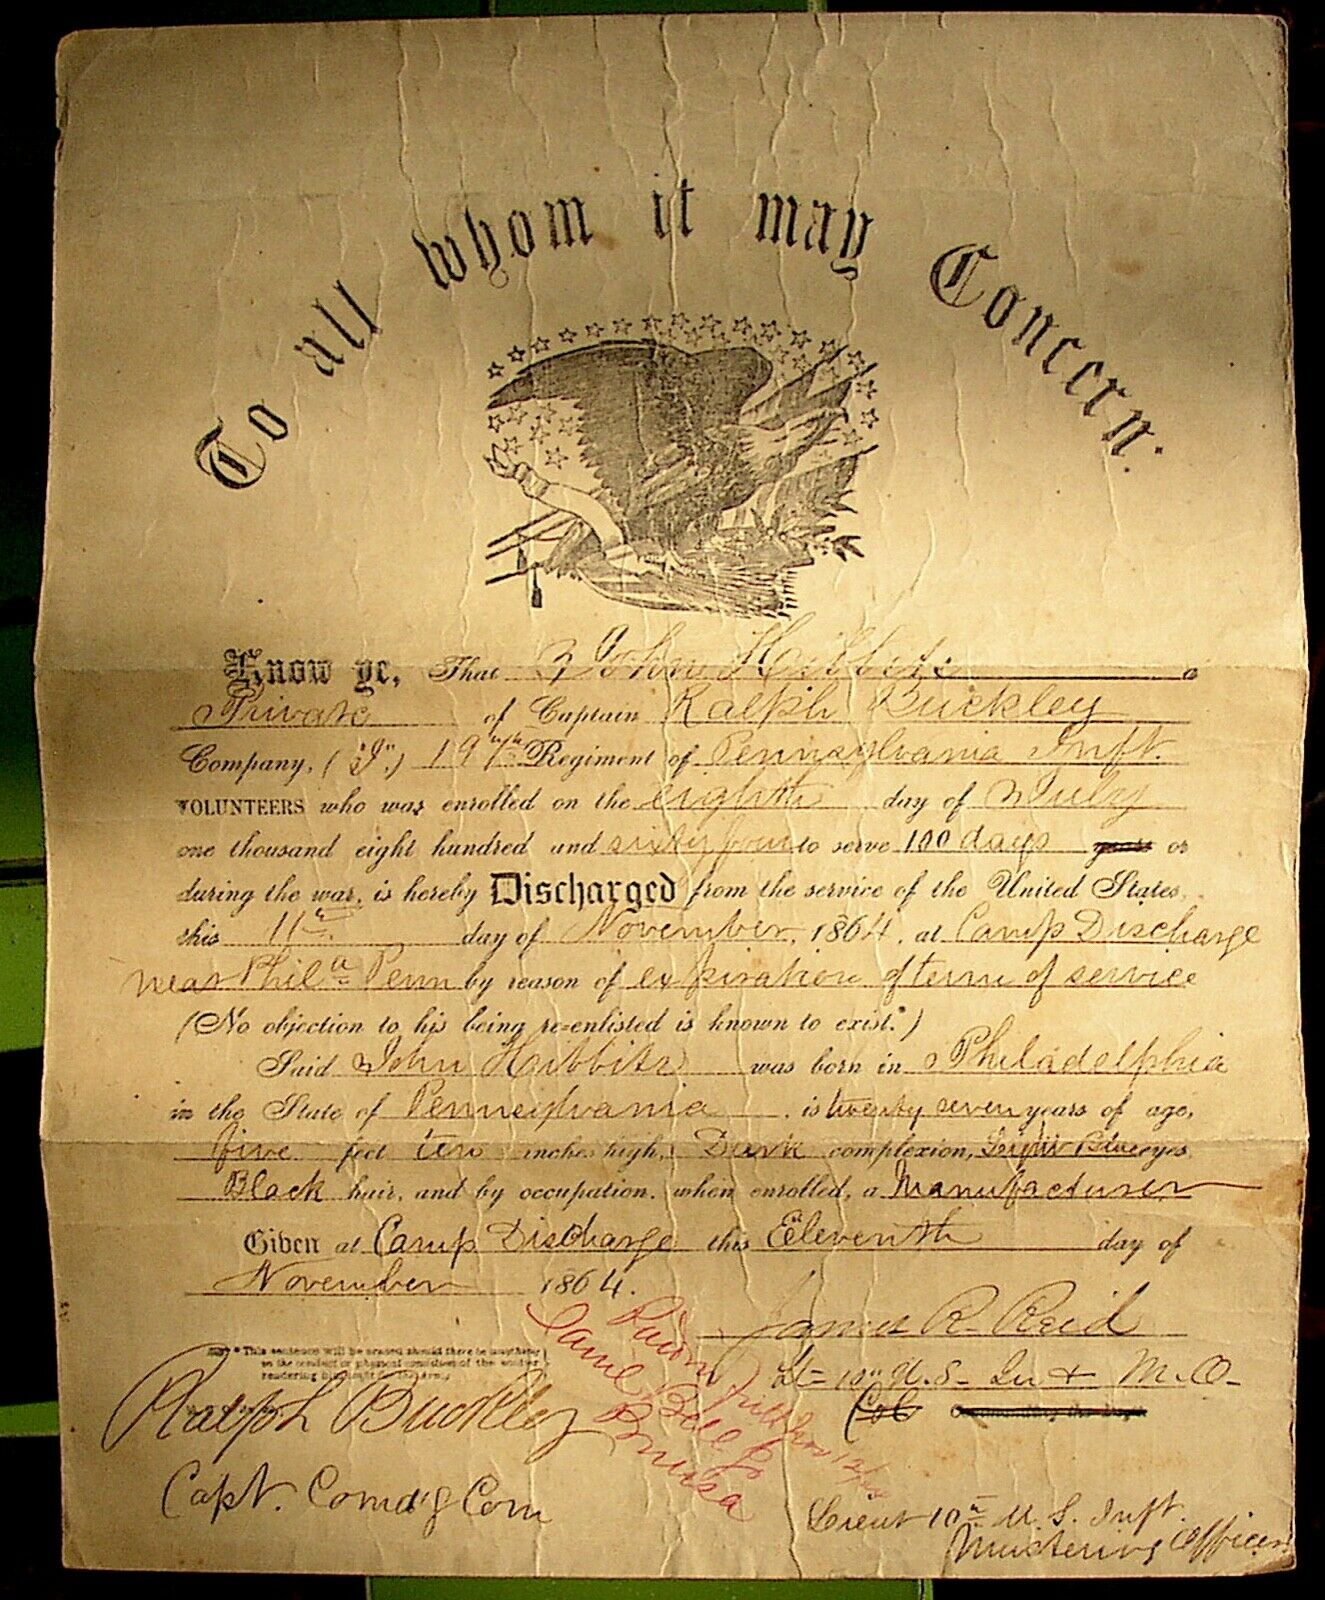 To all whom it may Concern.
Know ye, That John Hibbits a
Private of Captain Ralph Buckley
Company, ("I") 197th Regiment of Pennsylvania Inft.
VOLUNTEERS who was enrolled on the eighth day of July
one thousand eight hundred and sixty four to serve 100 days years or
during the war, is hereby Discharged from the service of the United States,
this 11th day of November, 1864, at Camp Discharge
near Phila Penn by reason of expiration of term of service
(No objection to his being re-enlisted is known to exist.*)
Said John Hibbits was born in Philadelphia
in the State of Pennsylvania, is twenty seven years of age,
five feet ten inches high, Dark complexion, Light Blue eyes,
Black hair, and by occupation, when enrolled, a Manufacturer
Given at Camp Discharge this Eleventh day of
November 1864.
James R. Reid
*This sentence will be erased should there be anything
in the conduct or physical condition of the soldier
rendering him unfit for the Army.
Lt 10th U.S. Inf & M.O.
Ralph Buckley
Commanding the Regt
Capt. Comdg Com
Lieut 10th U.S. Inft.
Mustering Officer